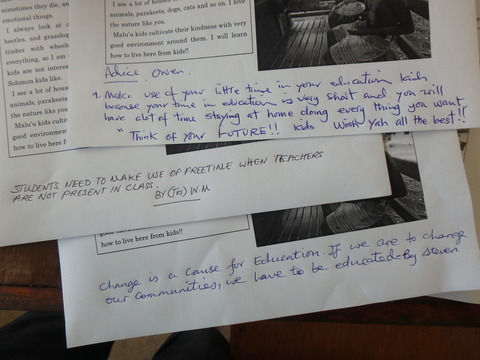 sometimes they die, an
emotional things.
I always look at
beetles, and grasshop
timber with wheel
everything, so I am
kids are not interes
Solomon kids like.
I see a lot of house
animals, parakeets
the nature like you
Malu'u kids cultiv
good environment
how to live here fro
I see a lot of house
animals, parakeets, dogs, cats and so on. I love
the nature like you.
Malu'u kids cultivate their kindness with very
good environment around them. I will learn
how to live here from kids!!
Advice Owen.
1. Make use of your little time in your education kids
because your time in education is very short and you will
have alot of time staying at home doing every thing you want.
"Think of your FUTURE!! kids Wish yah all the best!!
STUDENTS NEED TO MAKE USE OF FREETIME WHEN TEACHERS
ARE NOT PRESENT IN CLASS.
BY (TRS) W.M
how to live here from kids!!
Change is a Cause for Education. If we are to change
our Communities, we have to be educated. By Steven